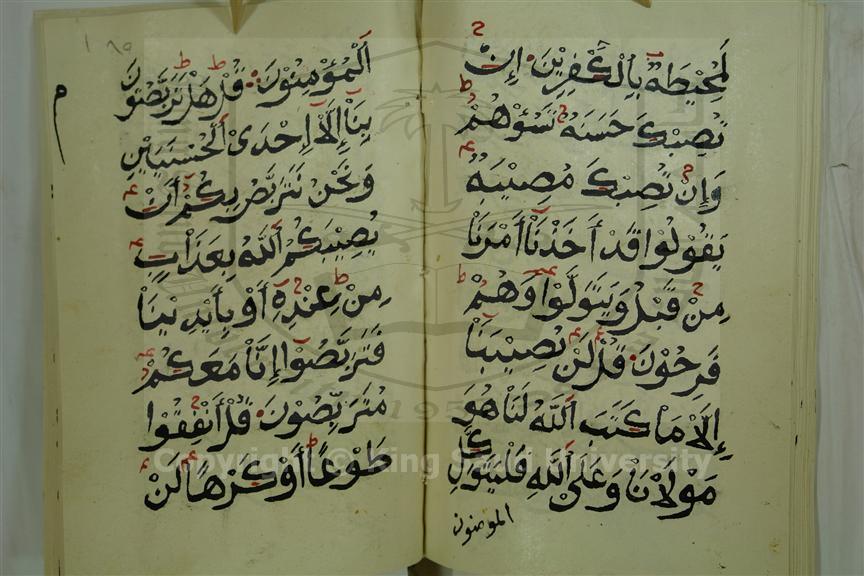 لَمُحِيطَةٌ بِالْكٰفِرِينَ إِنْ
تُصِبْكَ حَسَنَةٌ تَسُؤْهُمْ
وَإِنْ تُصِبْكَ مُصِيبَةٌ
يَقُولُوا قَدْ أَخَذْنَا أَمْرَنَا
مِنْ قَبْلُ وَيَتَوَلَّوْا وَهُمْ
فَرِحُونَ قُلْ لَنْ يُصِيبَنَا
إِلَّا مَا كَتَبَ اَللّٰهُ لَنَا هُوَ
مَوْلَانَا وَعَلَى اَللّٰهِ فَلْيَتَوَكَّلِ
المومنون
١٨٥
اَلْمُؤْمِنُونَ قُلْ هَلْ تَرَبَّصُونَ
بِنَا إِلَّا إِحْدَى اَلْحُسْنَيَيْنِ
وَنَحْنُ نَتَرَبَّصُ بِكُمْ أَنْ
يُصِيبَكُمُ اَللّٰهُ بِعَذَابٍ
مِنْ عِنْدِهِ أَوْ بِأَيْدِينَا
فَتَرَبَّصُوا إِنَّا مَعَكُمْ
مُتَرَبِّصُونَ قُلْ أَنْفِقُوا
طَوْعًا أَوْ كَرْهًا لَنْ
Copyright © King Saud University
1957